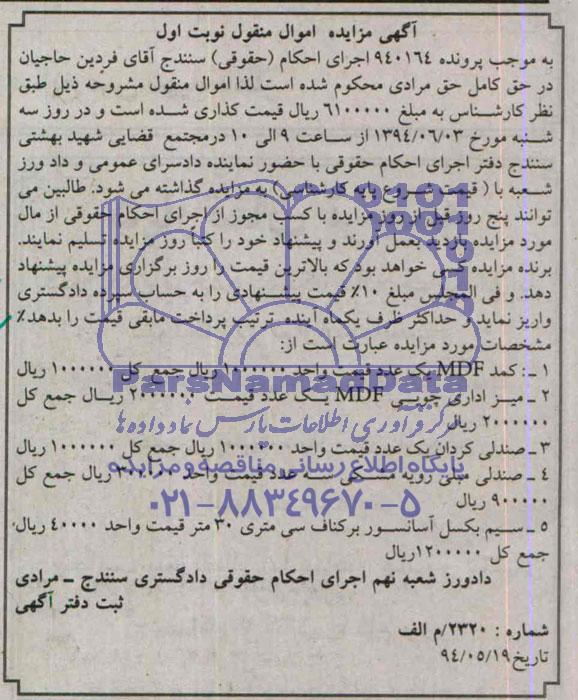 آگهی مزایده اموال منقول نوبت اول
به موجب پرونده ۹۴۰۱۶۴ اجرای احکام (حقوقی) سنندج آقای فردین حاجیان
در حق کامل حق مرادی محکوم شده است لذا اموال منقول مشروحه ذیل طبق
نظر کارشناس به مبلغ ۶۱۰۰۰۰۰ ریال قیمت گذاری شده است و در روز سه
شنبه مورخ ۱۳۹۴/۰۶/۰۳ از ساعت ۹ الی ۱۰ درمجتمع قضایی شهید بهشتی
سنندج دفتر اجرای احکام حقوقی با حضور نماینده دادسرای عمومی و داد ورز
شعبه با ( قیمت شروع پایه کارشناسی) به مزایده گذاشته می شود. طالبین می
توانند پنج روز قبل از روز مزایده با کسب مجوز از اجرای احکام حقوقی از مال
مورد مزایده بازدید بعمل آورند و پیشنهاد خود را کتباً روز مزایده تسلیم نمایند.
برنده مزایده کسی خواهد بود که بالاترین قیمت را روز برگزاری مزایده پیشنهاد
دهد. و فی المجلس مبلغ ۱۰٪ قیمت پیشنهادی را به حساب سپرده دادگستری
واریز نماید و حداکثر ظرف یکماه آینده ترتیب پرداخت مابقی قیمت را بدهد٪
مشخصات مورد مزایده عبارت است از:
۱ ـ: کمد MDF یک عدد قیمت واحد ۱۰۰۰۰۰۰ ریال جمع کل ۱۰۰۰۰۰۰ ریال
ParsNamadData
۲ ـ میز اداری چوبی MDF یک عدد قیمت ۲۰۰۰۰۰۰ ریال جمع کل
۲۰۰۰۰۰۰ ریال
مرکز فرآوری اطلاعات پارس نماد داده ها
۳ ـ صندلی گردان یک عدد قیمت واحد ۱۰۰۰۰۰۰ ریال جمع کل ۱۰۰۰۰۰۰ ریال
پایگاه اطلاع رسانی مناقصه و مزایده
۴ ـ صندلی مبلی رویه مشکی سه عدد قیمت واحد ۳۰۰۰۰۰ ریال جمع کل
۹۰۰۰۰۰ ریال
۰۲۱-۸۸۳۴۹۶۷۰-۵
۵ ـ سیم بکسل آسانسور برکناف سی متری ۳۰ متر قیمت واحد ۴۰۰۰۰ ریال،
جمع کل ۱۲۰۰۰۰۰ریال
دادورز شعبه نهم اجرای احکام حقوقی دادگستری سنندج ـ مرادی
ثبت دفتر آگهی
شماره : ۲۳۲۰/م الف
تاریخ ۹۴/۰۵/۱۹